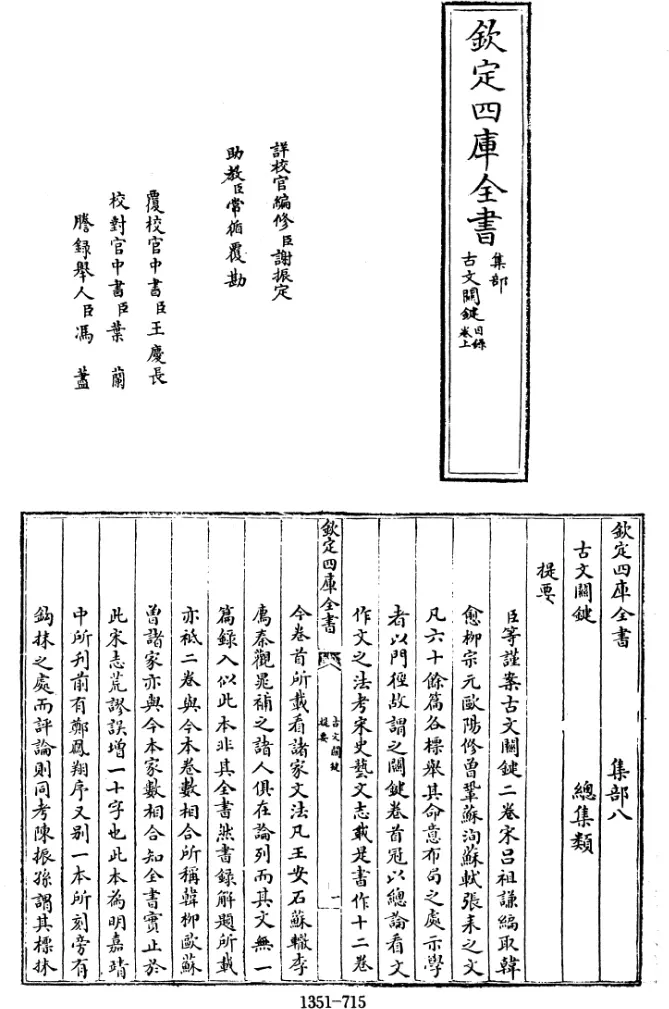 欽定四庫全書
集部
古文關鍵
目錄
卷上
詳校官編修臣謝振定
助教臣常循覆勘
覆校官中書臣王慶長
校對官中書臣葉蘭
謄録舉人臣馮葢
欽定四庫全書
集部八
古文關鍵
總集類
提要
臣等謹案古文關鍵二卷宋呂祖謙編取韓
愈柳宗元歐陽修曾鞏蘇洵蘇軾張耒之文
凡六十餘篇各標舉其命意布局之處示學
者以門徑故謂之關鍵卷首冠以總論看文
作文之法考宋史藝文志載是書作十二卷
欽定四庫全書
古文關鍵
提要
一
今卷首所載看諸家文法凡王安石蘇轍李
廌秦觀晁補之諸人俱在論列而其文無一
篇錄入似此本非其全書然書録解題所載
亦祗二卷與今本卷數相合所稱韓柳歐蘇
曾諸家亦與今本家數相合知全書實止於
此宋志荒謬誤增一十字也此本為明嘉靖
中所刋前有鄭鳳翔序又别一本所刻旁有
鈎抹之處而評論則同考陳振孫謂其標抹
1351-715